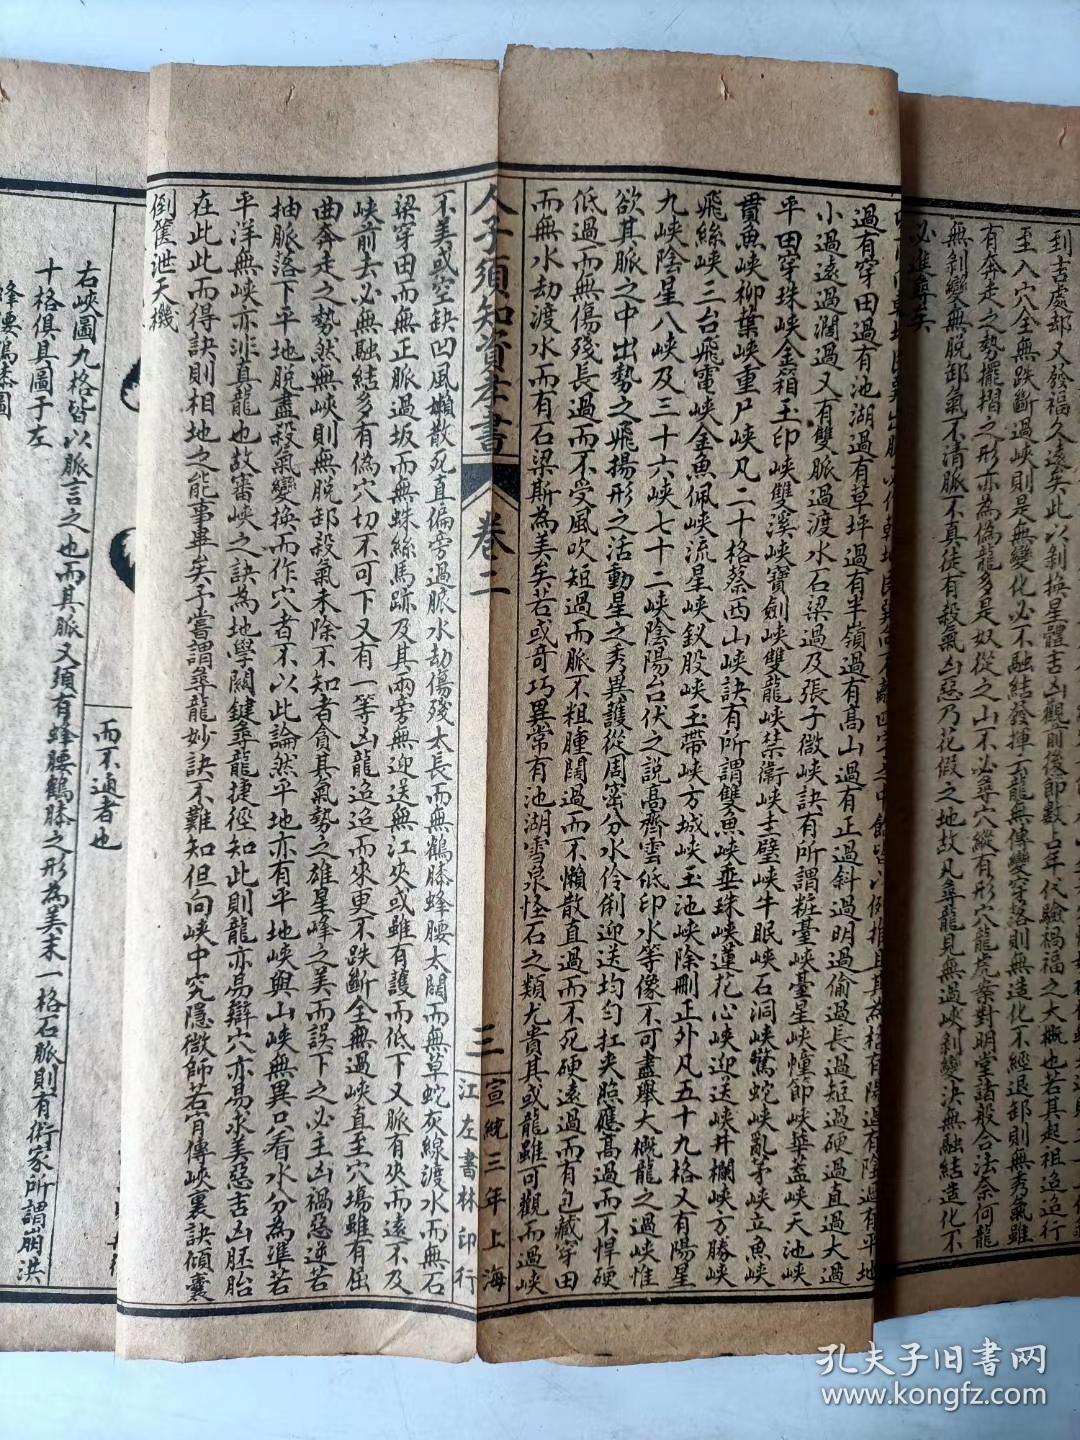 到吉處却又發福久遠矣此以剝換星體吉凶觀前後節數占年代驗禍福之大概也若其起祖迢迢行
至入穴全無跌斷過峽則是無變化必不融結發揮云龍無傳變穿落則無造化不經退卸則無秀氣雖
有奔走之勢擺摺之形亦為偽龍多是奴從之山不必尋穴縱有形穴龍虎案對明堂諸般合法奈何龍
無剝變無脫卸氣不清脈不真徒有殺氣凶惡乃花假之地故凡尋龍見無過峽剝變決無融結造化不
必進尋矣
過有穿田過有池湖過有草坪過有半嶺過有高山過有正過斜過明過偷過長過短過硬過直過大過
小過遠過濶過又有雙脈過渡水石梁過及張子微峽訣有所謂粧臺峽臺星峽幢節峽華蓋峽天池峽
平田穿珠峽金箱玉印峽雙溪峽寶劍峽雙龍峽禁衛峽圭璧峽牛眠峽石洞峽驚蛇峽亂茅峽立魚峽
貫魚峽柳葉峽重尸峽凡二十格蔡西山峽訣有所謂雙魚峽垂珠峽蓮花心峽迎送峽井欄峽方勝峽
飛絲峽三台飛電峽金魚佩峽流星峽釵股峽玉帶峽方城峽玉池峽除刪正外凡五十九格又有陽星
九峽陰星八峽及三十六峽七十二峽陰陽台伏之說高齊雲低印水等像不可盡舉大概龍之過峽惟
欲其脈之中出勢之飛揚形之活動星之秀異護從周密分水伶俐迎送均勻扛夾照應高過而不悍硬
低過而無傷殘長過而不受風吹短過而脈不粗腫闊過而不懶散直過而不死硬遠過而有包藏穿田
而無水劫渡水而有石梁斯為美矣若或奇巧異常有池湖雪泉怪石之類尤貴其或龍雖可觀而過峽
人子須知資孝書
卷二
三
宣統三年上海
江左書林印行
不美或空缺凹風嬾散死直偏旁過脈水劫傷殘太長而無鶴膝蜂腰太闊而無草蛇灰線渡水而無石
梁穿田而無正脈過坂而無蛛絲馬跡及其兩旁無迎送無江夾或雖有護而低下又脈有夾而遠不及
峽前去必無融結多有偽穴切不可下又有一等凶龍迢迢而來更不跌斷全無過峽直至穴場雖有屈
曲奔走之勢然無峽則無脫卸殺氣未除不知者貪其氣勢之雄星峰之美而誤下之必主凶禍惡逆若
抽脈落下平地脫盡殺氣變換而作穴者不以此論然平地亦有平地峽與山峽無異只看水分為準若
平洋無峽亦非真龍也故審峽之訣為地學關鍵尋龍捷徑知此則龍亦易辯穴亦易求美惡吉凶胚胎
在此此而得訣則相地之能事畢矣予嘗謂尋龍妙訣不難知但向峽中究隱微師若肯傳峽裏訣傾囊
倒篋泄天機
而不通者也
右峽圖九格皆以脈言之也而其脈又須有蜂腰鶴膝之形為美末一格石脈則有術家所謂崩洪
十格俱具圖于左
蜂腰鶴膝圖
孔夫子旧書网
www.kongfz.com